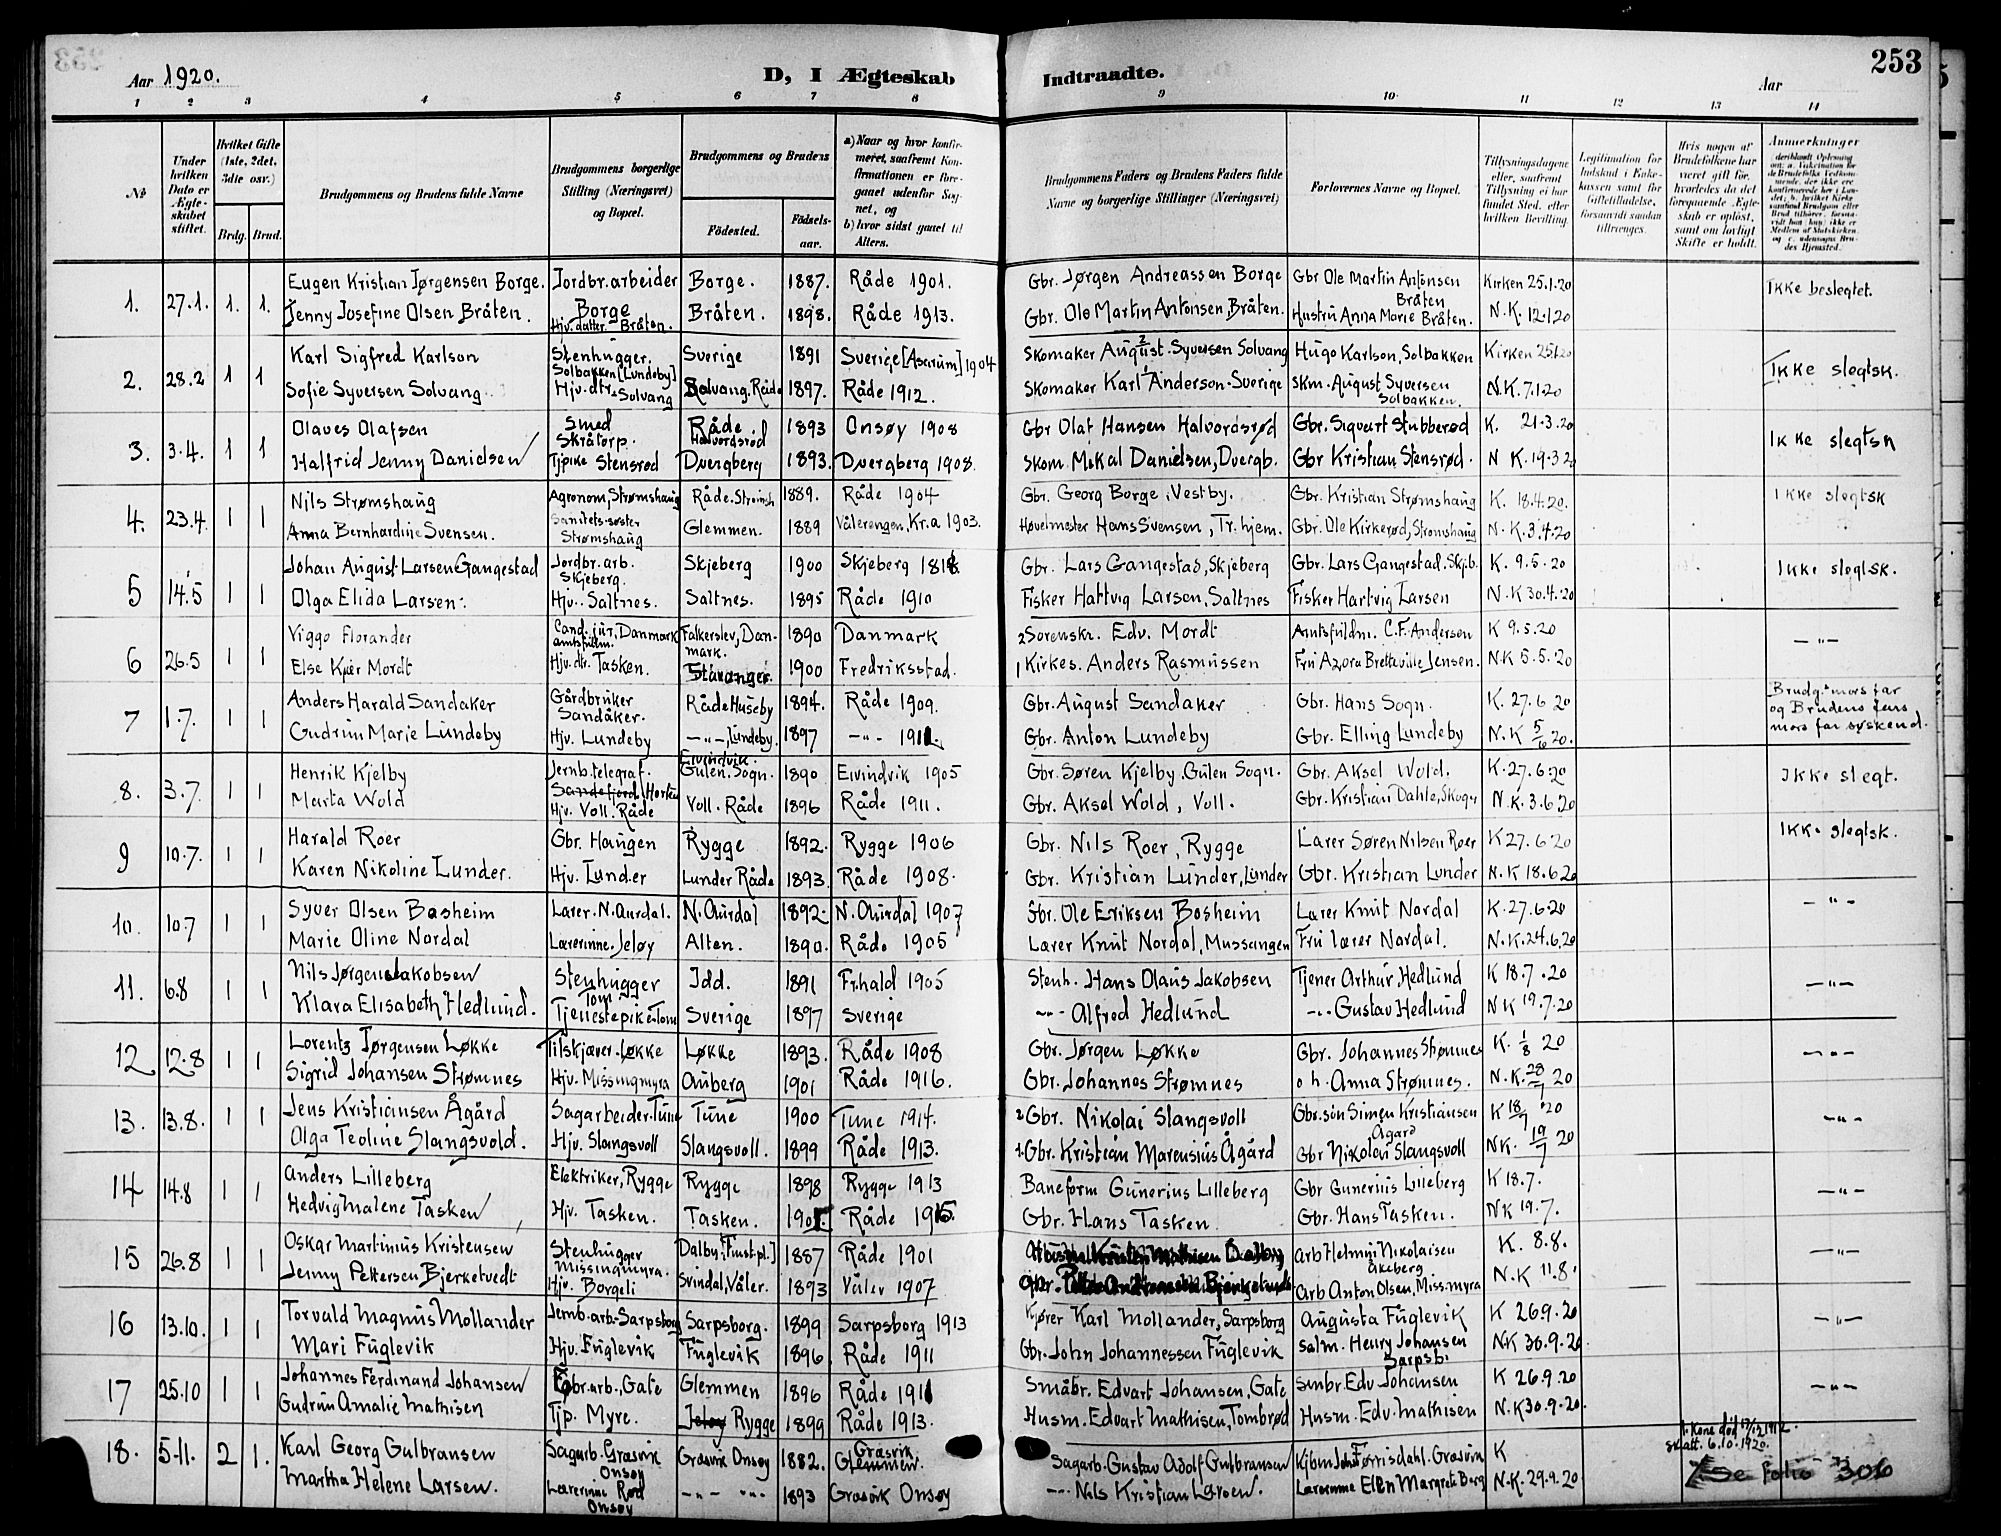 253
Aar 1920. D, I Ægteskab Indtraadte. Aar
1 2 3 4 5 6 7 8 9 10 11 12 13 14
No
Under hvilken Dato er Ægteskabet stiftet.
Hvilket Gifte (1ste, 2det, 3die osv.)
Brdg. Brud.
Brudgommens og Brudens fulde Navne
Brudgommens borgerlige Stilling (Næringsvei) og Bopæl.
Brudgommens og Brudens
Fødested. Fødselsaar.
a) Naar og hvor konfirmeret, saafremt Konfirmationen er foregaaet udenfor Sognet, og
b) hvor sidst gaaet til Alters.
Brudgommens Faders og Brudens Faders fulde Navne og borgerlige Stillinger (Næringsvei)
Forlovernes Navne og Bopæl.
Tillysningsdagene eller, saafremt Tillysning ei har fundet Sted, efter hvilken Bevilling.
Legitimation for Indskud i Enkekassen samt for Giftetilladelse, forsaavidt saadan tiltrænges.
Hvis nogen af Brudefolkene har været gift før, hvorledes da det foregaaende Ægteskab er opløst, samt om lovligt Skifte er holdt.
Anmerkninger
1. 27.1. 1. 1. Eugen Kristian Jørgensen Borge. Jordbr.arbeider Borge. 1887. Råde 1901. Gbr. Jørgen Andreassen Borge Gbr Ole Martin Antonsen Bråten Kirken 25.1.20 Ikke beslegtet.
Jenny Josefine Olsen Bråten. Borge Hjv. datter Bråten. Bråten. 1898. Råde 1913. Gbr. Ole Martin Antonsen, Bråten. Hustru Anna Marie Bråten. N.K. 12.1.20
2. 28.2 1 1 Karl Sigfred Karlson Stenhugger, Solbakken [Lundeby] Sverige 1891 Sverige [Asarum] 1904 Skomaker August Syversen Solvang Hugo Karlson, Solbakken Kirken 25.1.20 Ikke slegtsk.
Sofie Syversen Solvang Hjv. dtr. Solvang Solvang. Råde 1897. Råde 1912. Skomaker Karl Anderson. Sverige Skm. August Syversen Solbakken. N.K. 7.1.20
3. 3.4. 1 1 Olaves Olafsen Smed Skråtorp. Råde. Halvordsrød 1893 Onsøy 1908 Gbr Olaf Hansen Halvordsrød Gbr. Sigvart Stubberød K. 21.3.20 Ikke slegtsk
Halfrid Jenny Danielsen Tjpike Stensrød Dvergberg 1893. Dvergberg 1908. Skom. Mikal Danielsen, Dvergb. Gbr Kristian Stensrød. N K. 19.3.20
4. 23.4. 1 1 Nils Strømshaug Agronom, Strømshaug Råde. Strømsh 1889. Råde 1904 Gbr. Georg Borge, Vestby. Gbr. Kristian Strømshaug K. 18.4.20. Ikke slegtsk
Anna Bernhardine Svensen. Sanitets-søster Strømshaug Glemmen. 1889 Vålerengen, Kr.a 1903. Høvelmester Hans Svensen, Tr.hjem. Gbr. Ole Kirkerød, Strømshaug N.K. 3.4.20
5 14.5 1 1 Johan August Larsen Gangestad Jordbr. arb. Skjeberg. Skjeberg 1900 Skjeberg Gbr. Lars Gangestad, Skjeberg Gbr. Lars Gangestad. Skjb. K. 9.5.20 Ikke slegtsk.
Olga Elida Larsen. Hjv. Saltnes. Saltnes. 1895 Råde 1910 Fisker Hartvig Larsen, Saltnes Fisker Hartvig Larsen N.K 30.4.20
6 26.5 1 1 Viggo Florander Cand. jur, Danmark amtsfuldm. Falkerslev, Danmark. 1890 Danmark 2 Sorenskr. Edv. Mordt Amtsfuldm. C.F. Andersen K 9.5.20 —"—
Else Kjær Mordt Hjv. dtr. Tasken. Stavanger. 1900 Fredriksstad. 1 Kirkes. Anders Rasmussen Fru Azora Bretteville Jensen. N.K 5.5.20
7 1.7. 1 1 Anders Harald Sandaker Gårdbruker Sandaker. Råde Huseby 1894. Råde 1909. Gbr. August Sandaker Gbr. Hans Sogn. K. 27.6 20 Brudg.s mors far og Brudens fars mors far søskend.
Gudrun Marie Lundeby Hjv. Lundeby —"—, Lundeby. 1897 —"— 1912. Gbr. Anton Lundeby Gbr. Elling Lundeby N.K 5/6 20.
8. 3.7. 1 1 Henrik Kjelby Jernb. telegraf. Sandefjord (Horten Eivindvik. Gulen, Sogn. 1890 Eivindvik 1905 Gbr. Søren Kjelby, Gulen Sogn. Gbr. Aksel Wold. K. 27.6.20 Ikke slegt.
Marta Wold Hjv. Voll. Råde Voll. Råde 1896 Råde 1911. Gbr. Aksel Wold, Voll. Gbr. Kristian Dahle, Skogn N.K. 3.6.20
9 10.7. 1 1 Harald Roer Gbr. Haugen Rygge 1892. Rygge 1906 Gbr. Nils Roer, Rygge Lærer Søren Nilsen Roer K 27.6.20 Ikke slegtsk.
Karen Nikoline Lunder. Hjv. Lunder Lunder Råde 1893. Råde 1908. Gbr. Kristian Lunder, Lunder Gbr. Kristian Lunder N.K 18.6.20
10. 10.7 1 1 Syver Olsen Basheim Lærer. N. Aurdal. N. Aurdal 1892. N. Aurdal 1907 Gbr. Ole Eriksen Bosheim Lærer Knut Nordal K. 27.6.20 —"—
Marie Oline Nordal Lærerinne. Jeløy Alten. 1890. Råde 1905 Lærer Knut Nordal, Mussangen Fru lærer Nordal. N.K. 24.6.20
11. 6.8 1 1 Nils Jørgen Jakobsen Stenhugger Tom Idd. 1891 Fr.hald 1905 Stenh. Hans Olaus Jakobsen Tjener Arthur Hedlund K 18.7.20 —"—
Klara Elisabeth Hedlund. Tjenestepike Tom Sverige 1897 Sverige —"— Alfred Hedlund —"— Gustav Hedlund N K 19.7.20
12 12.8 1 1 Lorentz Jørgensen Løkke Tilskjærer. Løkke Løkke 1893. Råde 1908 Gbr. Jørgen Løkke Gbr. Johannes Strømnes K. 1/8 20 —"—
Sigrid Johansen Strømnes Hjv. Missingmyra Auberg 1901 Råde 1916. Gbr. Johannes Strømnes o h. Anna Strømnes. N.K. 28/7 20
13. 13.8. 1 1 Jens Kristiansen Ågård Sagarbeider. Tune Tune 1900 Tune 1914. 2 Gbr. Nikolai Slangsvoll Gbr.søn Simen Kristiansen Ågård K 18/7 20 —"—
Olga Teoline Slangsvold. Hjv. Slangsvoll Slangsvoll. 1899 Råde 1913. 1. Gbr. Kristian Marensius Ågård Gbr Nikolai Slangsvoll N K. 19/7 20
14 14.8 1 1 Anders Lilleberg Elektriker, Rygge Rygge 1898 Rygge 1913 Baneform Gunerius Lilleberg Gbr Gunerius Lilleberg K 18.7. —"—
Hedvig Malene Tasken Hjv. Tasken. Tasken. Råde 1915. Gbr. Hans Tasken. Gbr. Hans Tasken. N K 19.7.
15 26.8 1 1 Oskar Martinius Kristensen Stenhugger Missingmyra. Dalby. 1887 Råde 1901 Arb Helmer Nikolaisen Åkeberg K. 8.8. —"—
Jenny Pettersen Bjerketvedt Hjv. Borgeli Svindal, Våler. 1893 Våler 1907 Arb Anton Olsen, Miss.myra N.K 11.8.
16 13.10. 1 1 Torvald Magnus Mollander Jernb.arb. Sarpsborg Sarpsborg. 1899 Sarpsborg 1913 Kjører Karl Mollander, Sarpsborg Augusta Fuglevik K 26.9.20 —"—
Mari Fuglevik Hjv. Fuglevik Fuglevik 1896 Råde 1911 Gbr. John Johannessen Fuglevik Salm. Henry Johansen Sarpsb. N.K 30.9.20.
17 25.10 1 1 Johannes Ferdinand Johansen Gbr.arb., Gate Glemmen 1896 Råde 1911 Småbr. Edvart Johansen, Gate Smbr. Edv Johansen K 26.9.20 —"—
Gudrun Amalie Mathisen Tjp. Myre. Jeløy Rygge 1899 Råde 1913. Husm. Edvart Mathisen, Tombrød Husm. Edv. Mathisen N.K 30.9.20.
18. 5.11. 2 1. Karl Georg Gulbransen Sagarb. Græsvik Onsøy Græsvik Onsøy 1882. Græsvik Glemmen. Sagarb. Gustav Adolf Gulbransen K 1. Kone død 17/12 1912. Skatt. 6.10.1920.
Martha Helene Larsen. Lærerinne Rød Onsøy —"— —"— 1893 Græsvik Onsøy —"— Nils Kristian Larsen. Lærerinne Ellen Margrete Berg N.K. 29.9.20 Se folio 306